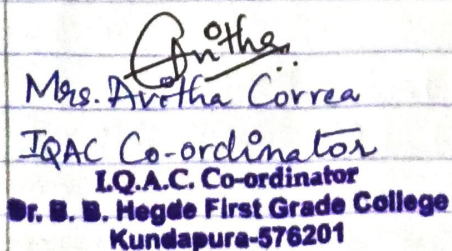 Anitha
Mrs. Avitha Correa
IQAC Co-ordinator
I.Q.A.C. Co-ordinator
Dr. B. B. Hegde First Grade College
Kundapura-576201